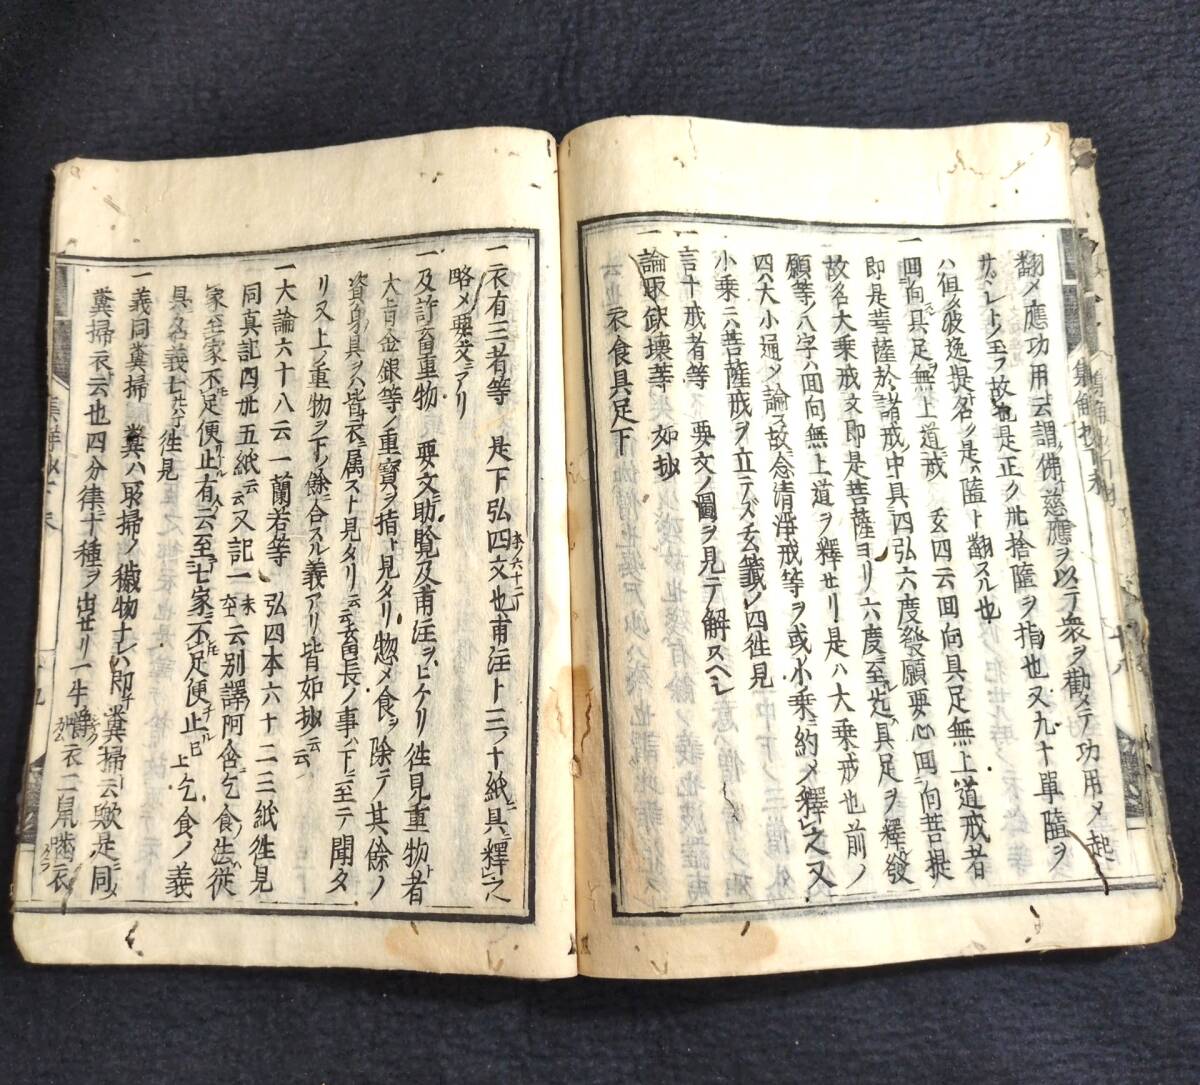 翻メ應功用云謂佛慈應ヲ以テ衆ヲ勸メテ功用メ起
サシムトノ玉フ故也是正ク
捨墮ヲ指也又九十單墮ヲ
ハ但
波逸提名ク是ハ墮ト翻スル也
一回向具足無上道戒 玄四云回向具足無上道戒者
即是菩薩於諸戒中具四弘六度發願要心回向菩提
故名大乘戒文即是菩薩ヨリ六度至
具足ヲ釋發
願等ノ八字ハ回向無上道ヲ釋セリ是ハ大乘戒也前ノ
四大小通メ論ス故念清淨戒等ヲ或小乘ニ約メ釋之又
小乘ニハ菩薩戒ヲ立テズ玄籤ノ四徃見
一言十戒者等 要文ノ圖ヲ見テ解スヘシ
一論取欽壞等 如抄
衣食具足下
一衣有三者等 是下弘四文也甫注ト三ノ十紙具釋之
本ノ六十二丁
略メ要文ニアリ
一及許畜重物 要文助覽及甫注ヲヒケリ徃見重物者
大
金銀等ノ重寶ヲ指ト見タリ惣メ食ヲ除テ其餘ノ
資身具ヲハ皆衣ニ属スト見タリ云云畜長ノ事ハ下ニ至テ聞タ
リ又上ノ重物ヲ下ノ餘ニ合スル義アリ皆如抄云云
一大論六十八云一蘭若等 弘四本六十二三紙徃見
同真記四
五紙云云又記一末
云別譯阿含乞食法從
家至家不足便止有云至七家不足便止已上乞食ノ義
具名
義七
徃見
一義同糞掃 糞ハ
掃ノ穢物ナレハ即糞掃云歟是同
糞掃衣云也四分律十種ヲ出セリ一牛嚼衣二鼠嚙衣